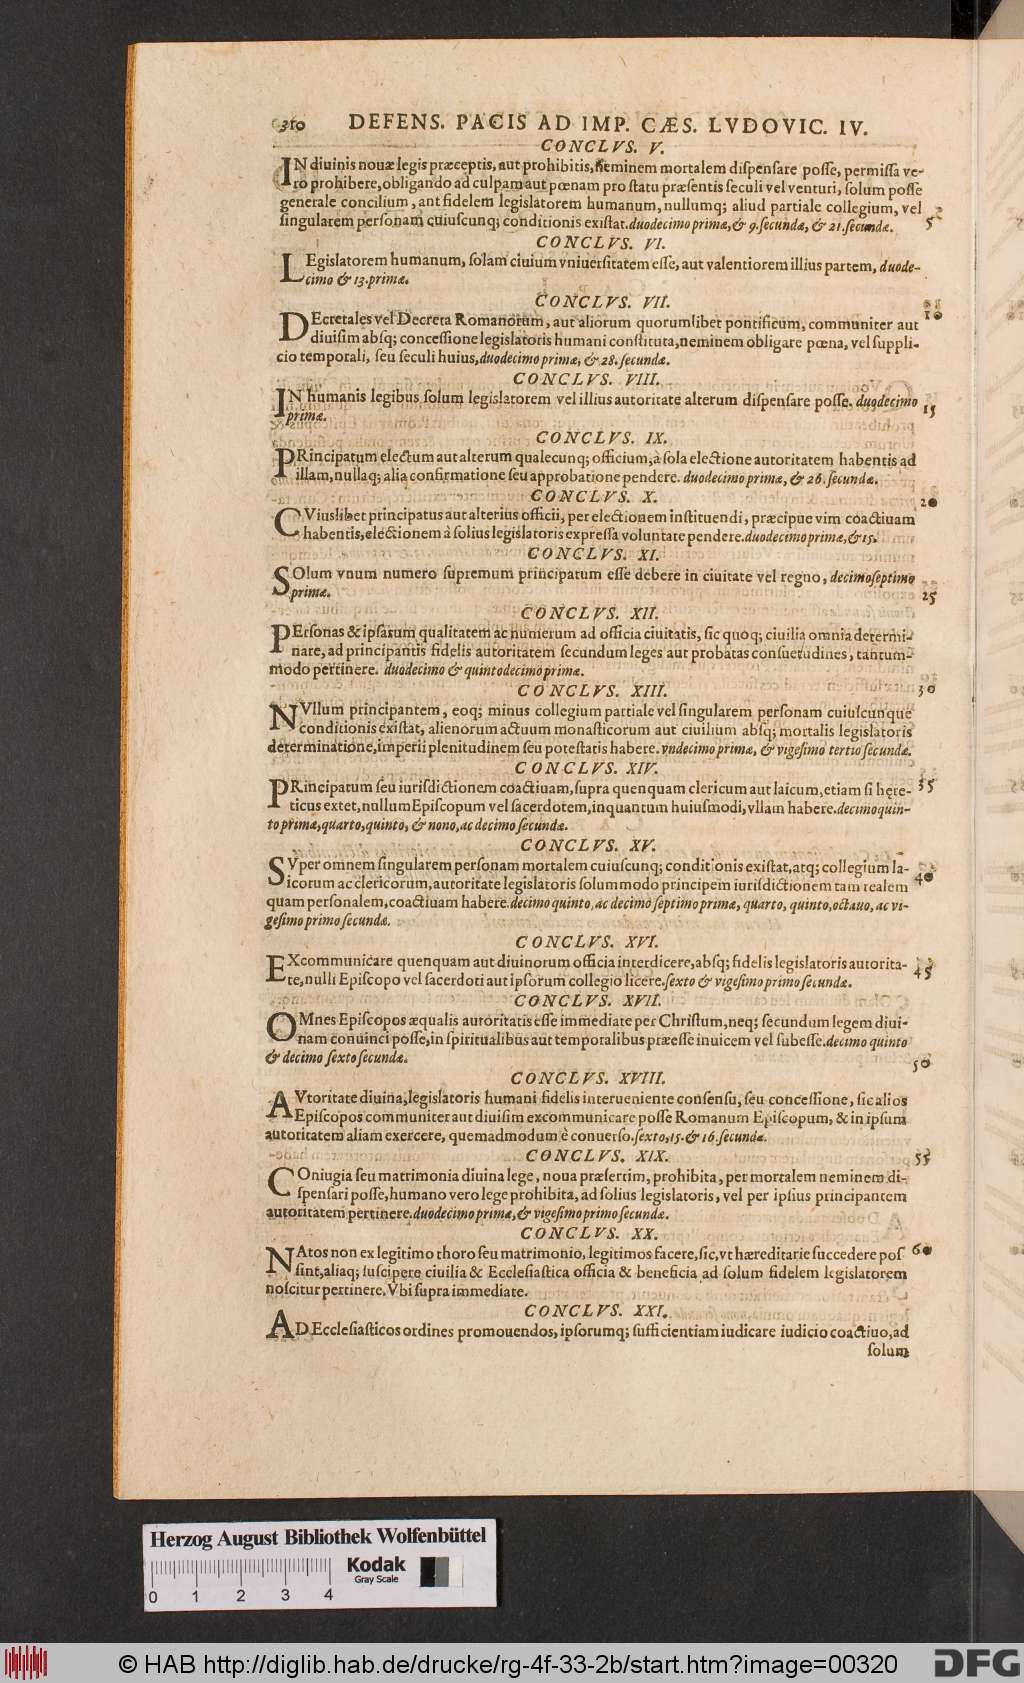 310 DEFENS. PACIS AD IMP. CÆS. LVDOVIC. IV.
CONCLVS. V.
IN diuinis nouæ legis præceptis, aut prohibitis, neminem mortalem dispensare posse, permissa ve-
ro prohibere, obligando ad culpam aut pœnam pro statu præsentis seculi vel venturi, solum posse
generale concilium, aut fidelem legislatorem humanum, nullumq; aliud partiale collegium, vel
singularem personam cuiuscunq; conditionis existat. duodecimo primæ, & 9. secundæ, & 21. secundæ. 5
CONCLVS. VI.
LEgislatorem humanum, solam ciuium vniuersitatem esse, aut valentiorem illius partem, duode-
cimo & 13. primæ.
CONCLVS. VII.
DEcretales vel Decreta Romanorum, aut aliorum quorumlibet pontificum, communiter aut 10
diuisim absq; concessione legislatoris humani constituta, neminem obligare pœna, vel suppli-
cio temporali, seu seculi huius, duodecimo primæ, & 28. secundæ.
CONCLVS. VIII.
IN humanis legibus solum legislatorem vel illius autoritate alterum dispensare posse. duodecimo 15
primæ.
CONCLVS. IX.
PRincipatum electum aut alterum qualecunq; officium, à sola electione autoritatem habentis ad
illam, nullaq; alia confirmatione seu approbatione pendere. duodecimo primæ, & 26. secundæ.
CONCLVS. X. 20
CViuslibet principatus aut alterius officii, per electionem instituendi, præcipue vim coactiuam
habentis, electionem à solius legislatoris expressa voluntate pendere. duodecimo primæ, & 15.
CONCLVS. XI.
SOlum vnum numero supremum principatum esse debere in ciuitate vel regno, decimoseptimo
primæ. 25
CONCLVS. XII.
PErsonas & ipsarum qualitatem ac numerum ad officia ciuitatis, sic quoq; ciuilia omnia determi-
nare, ad principantis fidelis autoritatem secundum leges aut probatas consuetudines, tantum-
modo pertinere. duodecimo & quintodecimo primæ.
CONCLVS. XIII. 30
NVllum principantem, eoq; minus collegium partiale vel singularem personam cuiuscunque
conditionis existat, alienorum actuum monasticorum aut ciuilium absq; mortalis legislatoris
determinatione, imperii plenitudinem seu potestatis habere. vndecimo primæ, & vigesimo tertio secundæ.
CONCLVS. XIV.
PRincipatum seu iurisdictionem coactiuam, supra quenquam clericum aut laicum, etiam si hęre- 35
ticus extet, nullum Episcopum vel sacerdotem, inquantum huiusmodi, vllam habere. decimoquin-
to primæ, quarto, quinto, & nono, ac decimo secundæ.
CONCLVS. XV.
SVper omnem singularem personam mortalem cuiuscunq; conditionis existat, atq; collegium la-
icorum ac clericorum, autoritate legislatoris solummodo principem iurisdictionem tam realem 40
quam personalem, coactiuam habere. decimo quinto, ac decimo septimo primæ, quarto, quinto, octauo, ac vi-
gesimo primo secundæ.
CONCLVS. XVI.
EXcommunicare quenquam aut diuinorum officia interdicere, absq; fidelis legislatoris autorita- 45
te, nulli Episcopo vel sacerdoti aut ipsorum collegio licere. sexto & vigesimo primo secundæ.
CONCLVS. XVII.
OMnes Episcopos æqualis autoritatis esse immediate per Christum, neq; secundum legem diui-
nam conuinci posse, in spiritualibus aut temporalibus præesse inuicem vel subesse. decimo quinto
& decimo sexto secundæ. 50
CONCLVS. XVIII.
AVtoritate diuina, legislatoris humani fidelis interueniente consensu, seu concessione, sic alios
Episcopos communiter aut diuisim excommunicare posse Romanum Episcopum, & in ipsum
autoritatem aliam exercere, quemadmodum è conuerso. sexto, 15. & 16. secundæ.
CONCLVS. XIX. 55
COniugia seu matrimonia diuina lege, noua præsertim, prohibita, per mortalem neminem di-
spensari posse, humano vero lege prohibita, ad solius legislatoris, vel per ipsius principantem
autoritatem pertinere. duodecimo primæ, & vigesimo primo secundæ.
CONCLVS. XX.
NAtos non ex legitimo thoro seu matrimonio, legitimos facere, sic, vt hæreditarie succedere pos 60
sint, aliaq; suscipere ciuilia & Ecclesiastica officia & beneficia ad solum fidelem legislatorem
noscitur pertinere. Vbi supra immediate.
CONCLVS. XXI.
AD Ecclesiasticos ordines promouendos, ipsorumq; sufficientiam iudicare iudicio coactiuo, ad
solum
Herzog August Bibliothek Wolfenbüttel
Kodak
Gray Scale
0 1 2 3 4
© HAB http://diglib.hab.de/drucke/rg-4f-33-2b/start.htm?image=00320
DFG